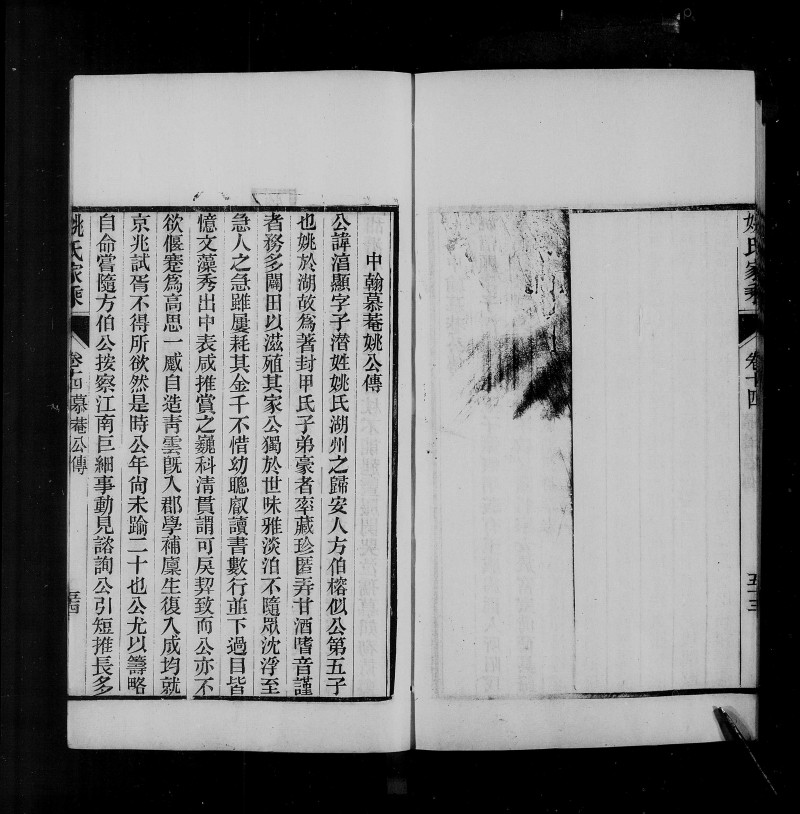 姚氏家乘
卷十四
五十三
中翰慕菴姚公傳
公諱淯顯字子潛姓姚氏湖州之歸安人方伯榕似公第五子
也姚於湖故爲著封甲氏子弟豪者率藏珍匿弄甘酒嗜音謹
者務多闢田以滋殖其家公獨於世味雅淡泊不隨眾沈浮至
急人之急雖屢耗其金千不惜幼聰叡讀書數行並下過目皆
憶文藻秀出中表咸推賞之巍科清貫謂可戾契致而公亦不
欲偃蹇爲高思一威自造青雲旣入郡學補廩生復入成均就
京兆試胥不得所欲然是時公年尙未踰二十也公尤以籌略
自命嘗隨方伯公按察江南巨細事動見諮詢公引短推長多
姚氏家乘
卷十四慕菴公傳